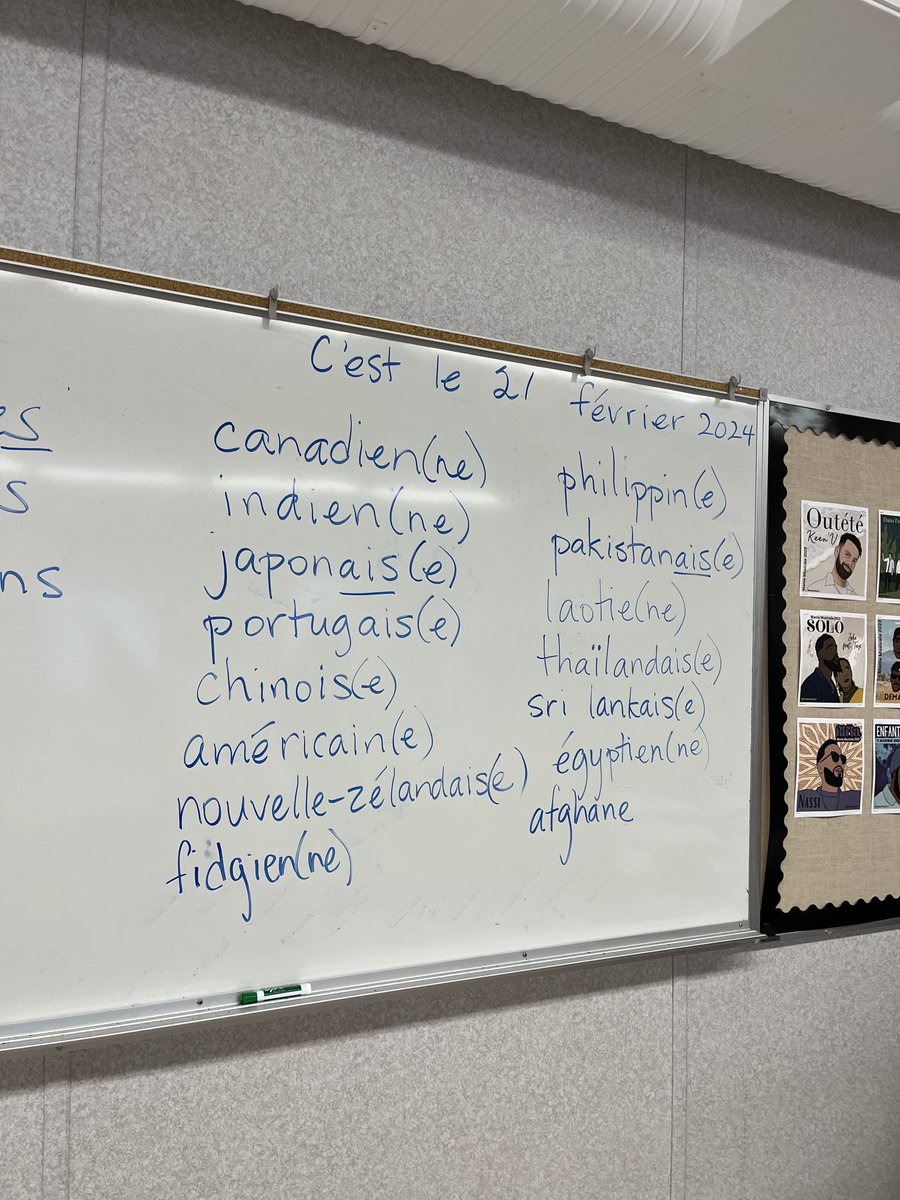 C'est le 21 février 2024
es
s
ns
canadien(ne)
indien(ne)
japonais(e)
portugais(e)
chinois(e)
américain(e)
nouvelle-zélandais(e)
fidgien(ne)
philippin(e)
pakistanais(e)
laotie(ne)
thaïlandais(e)
sri lankais(e)
égyptien(ne)
afghane
Outété
Keen V
SOLO
NASSI
ENFANT